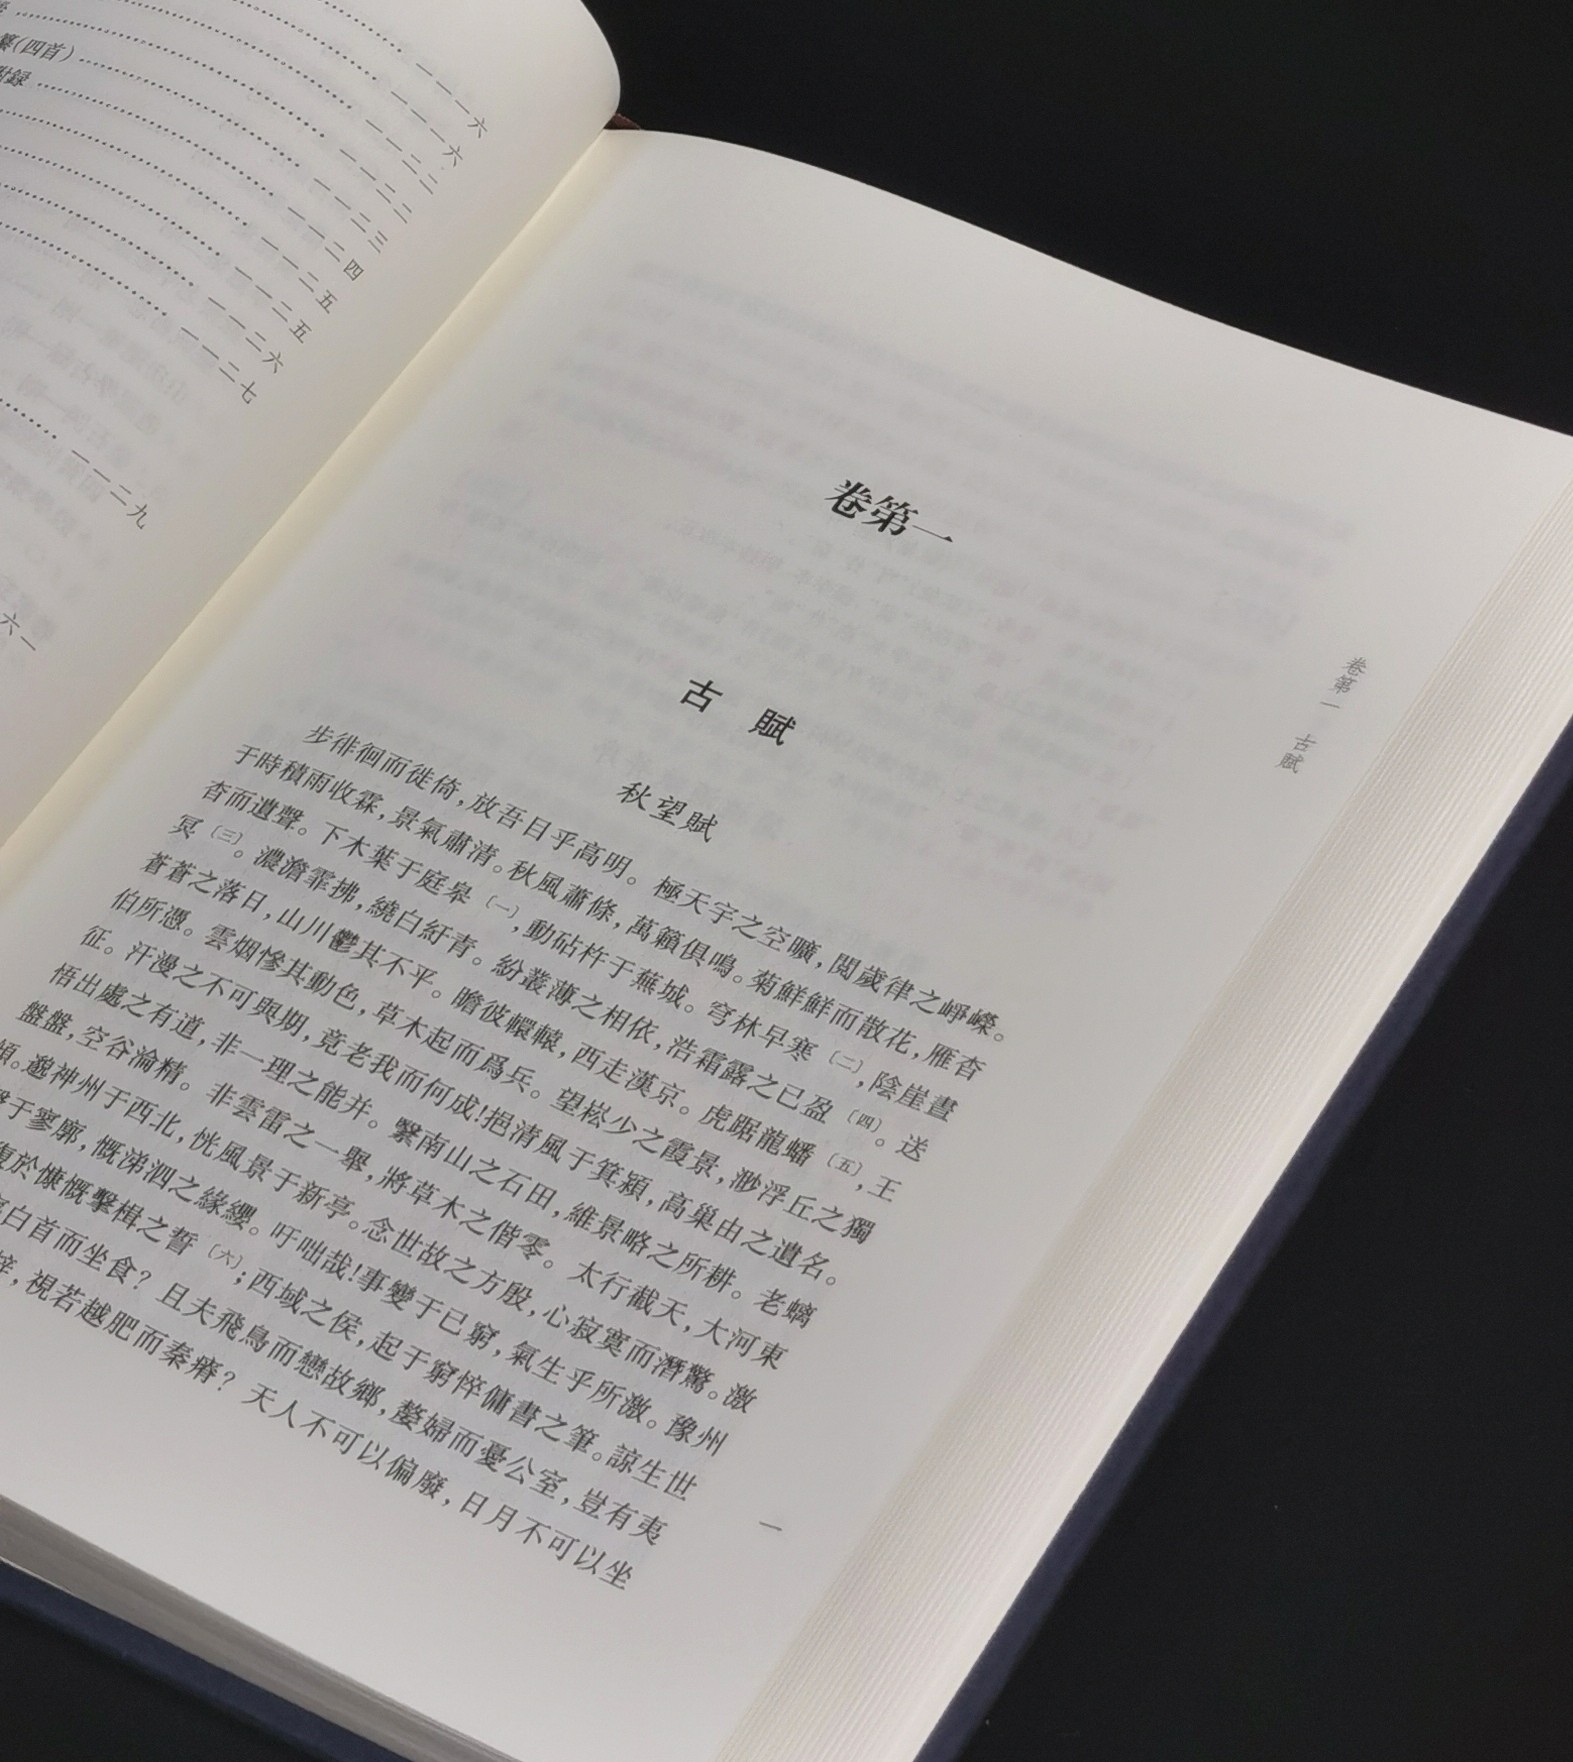 纂（四首）
附録
一一一六
一一一六
一一二二
一一二二
一一二三
一一二四
一一二五
一一二五
一一二六
一一二七
一一二九
六一
卷第一
古　賦
秋望賦
步徘徊而徙倚，放吾目乎高明。極天宇之空曠，閲歲律之崢嶸。
于時積雨收霖，景氣肅清。秋風蕭條，萬籟俱鳴。菊鮮鮮而散花，雁杳
杳而遺聲。下木葉于庭皋〔一〕，動砧杵于蕪城。穹林早寒〔二〕，陰崖晝
冥〔三〕。濃澹霏拂，繞白紆青。紛叢薄之相依，浩霜露之已盈〔四〕。送
蒼蒼之落日，山川鬱其不平。瞻彼轘轅，西走漢京。虎踞龍蟠〔五〕，王
伯所憑。雲烟慘其動色，草木起而爲兵。望崧少之霞景，渺浮丘之獨
征。汗漫之不可與期，竟老我而何成！挹清風于箕潁，高巢由之遺名。
悟出處之有道，非一理之能并。繄南山之石田，維景略之所耕。老螭
盤盤，空谷淪精。非雲雷之一舉，將草木之偕零。太行截天，大河東
傾。邈神州于西北，恍風景于新亭。念世故之方殷，心寂寞而潛驚。激
于寥廓，慨涕泗之緣纓。吁咄哉！事變于已窮，氣生乎所激。豫州
復於慷慨擊楫之誓〔六〕；西域之侯，起于窮悴傭書之筆。諒生世
白首而坐食？且夫飛鳥而戀故鄉，嫠婦而憂公室，豈有夷
梓，視若越肥而秦瘠？天人不可以偏廢，日月不可以坐
卷第一　古賦
一